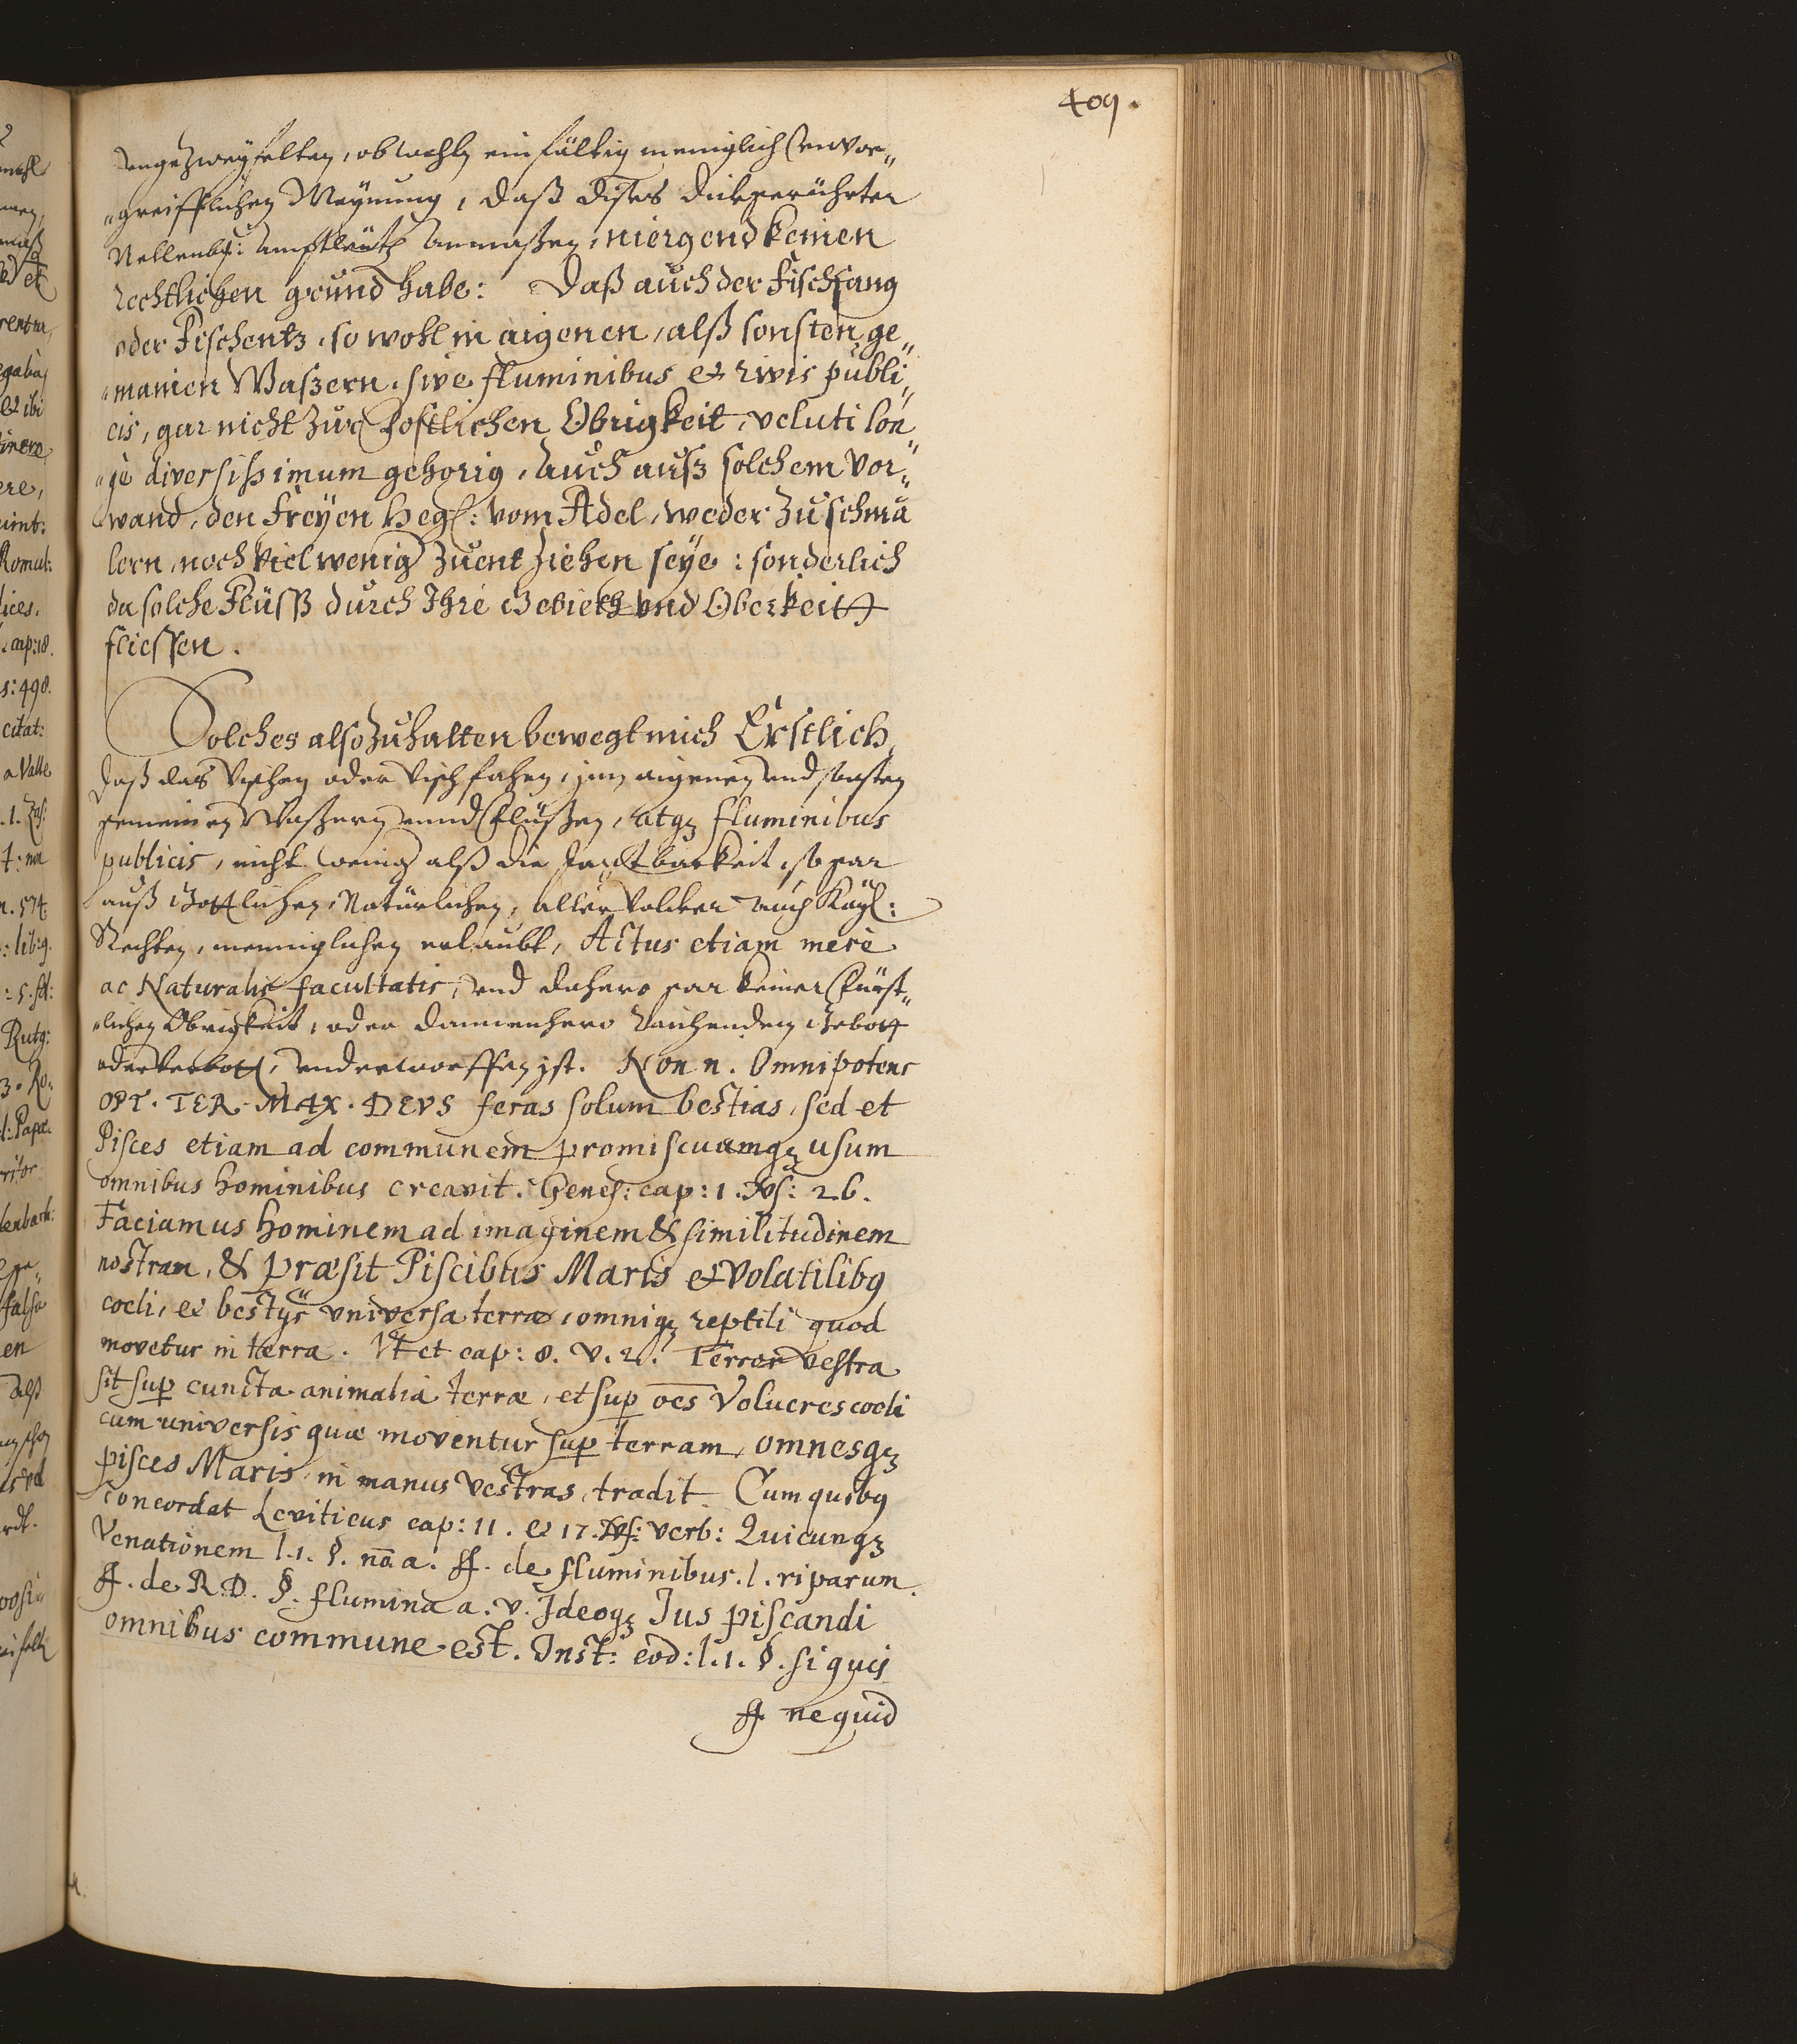 409.
ungezweyfelten, obwohln einfältig meniglich unvor„
„greifflichen Meynung, daß dises dickgerührter
Nellenb: Amptleüth Anmaßen, niergend keinen
rechtlichen grund habe: Daß auch der Fischfang
oder Fischentz, so wohl in aigenen, alß sonsten ge„
„mainen Waßern, sivè fluminibus et rivis publi„
cis, gar nicht zur forstlichen Obrigkeit, veluti lon„
„gè diversißimum gehörig, auch auß solchem Vor„
wand, den Freyen Heg: vom Adel, weder zu schmä
lern, noch viel wenig zuentziehen seye: sonderlich
da solche Flüsß durch Ihre Gebieth und Oberkeitt
fliessen.
Solches also zuhalten bewegt mich Erstlich,
daß das Vischen oder Vischfahen, inn aigenen und sonsten
gemeinen Waßern unnd Flüßen, atqз fluminibus
publicis, nicht wenig alß die Jagtbarkeit, so gar
auß Göttlichen, Natürlichen, aller Völcker auch Kayl:
Rechten, menniglichen erlaubt, Actus etiam meré
ac Naturalis facultatis, und dahero gar keiner Fürst„
„lichen Obrigkeit, oder dannenhero rüchenden Gebott
oder Verbott, underworffen ist. Non n. Omnipotens
OPT. TER. MAX. DEVS feras solum bestias, sed et
Pisces etiam ad communem promiscuamqз usum
omnibus hominibus creavit. Genes: cap: 1. Vs: 26.
Faciamus hominem ad imaginem & similitudinem
nostram, & præsit Piscibus Maris et Volatilibꝰ
coeli, et bestijs universa terræ, omniqз reptili quod
movetur in terra. Et et cap: 8. v. 2. Terror vestra
sit sup cuncta animalia terræ, et sup oēs Volucres coeli
cum universis quæ moventur sup terram, omnesqз
pisces Maris, in manus vestras, tradit. Cum quibꝰ
concordat Leviticus cap: 11. et 17. Vs: verb: Quicunqз
Venationem l. 1. §. nō a. ff. de fluminibus. l. riparum.
ff. de R. D. §. flumina a. v. Ideoqз Ius piscandi
omnibus commune est. Inst: eod: l. 1. §. si quis
ff. ne quid